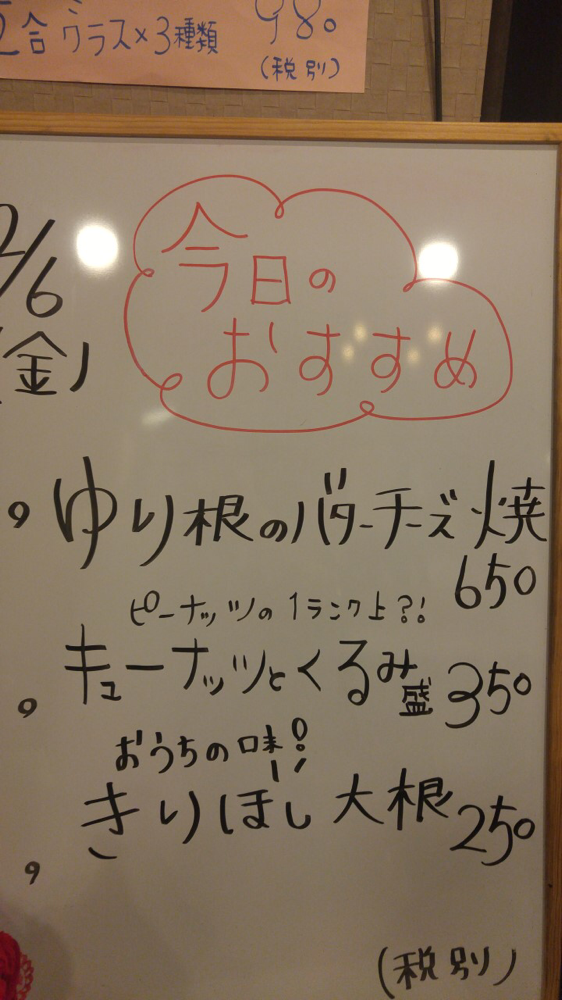 合グラス×3種類 980
(税別)
2/6
(金)
今日の
おすすめ
ゆり根のバターチーズ焼
650
ピーナッツの1ランク上?!
キューナッツとくるみ盛 350
おうちの味!
きりぼし大根 250
(税別)